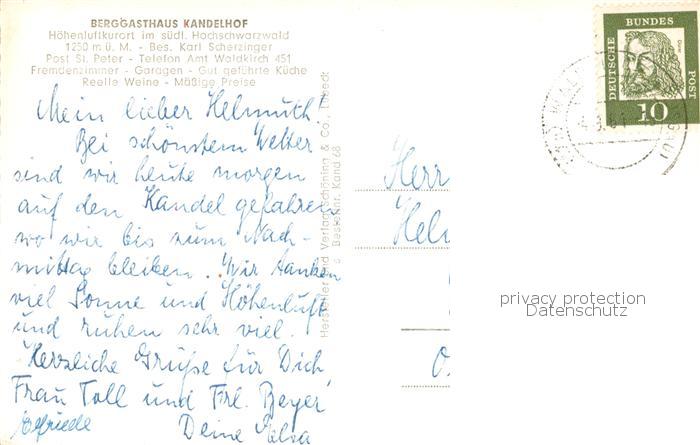 BERGGASTHAUS KANDELHOF
Höhenluftkurort im südl. Hochschwarzwald
1250 m ü. M. - Bes. Karl Scherzinger
Post St. Peter - Telefon Amt Waldkirch 451
Fremdenzimmer - Garagen - Gut geführte Küche
Reelle Weine - Mäßige Preise
Mein lieber Helmuth!
Bei schönstem Wetter
sind wir heute morgen
auf den Kandel gefahren
wo wir bis zum Nach-
mittag bleiben. Wir tanken
viel Sonne und Höhenluft
und ruhen sehr viel.
Herzliche Grüße für Dich,
Frau Toll und Frl. Beyer
Elfriede
Deine
Hersteller und Verlag Schöning & Co., Lübeck
Bestellnr. Kand 68
Herr
Hel
DEUTSCHE
BUNDES
POST
10
privacy protection
Datenschutz